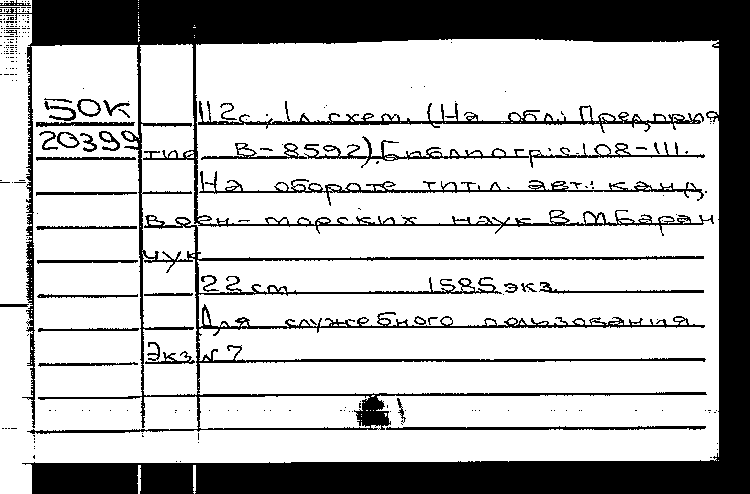 50К
112с.; 1л.схем. (На обл.: Предприя
20399
тие В-8592). Библиогр.: с.108-111.
На обороте тит.л. авт.: канд.
воен-морских наук В.М.Баран
чук
22 см. 1585 экз.
Для служебного пользования
Экз. N 7